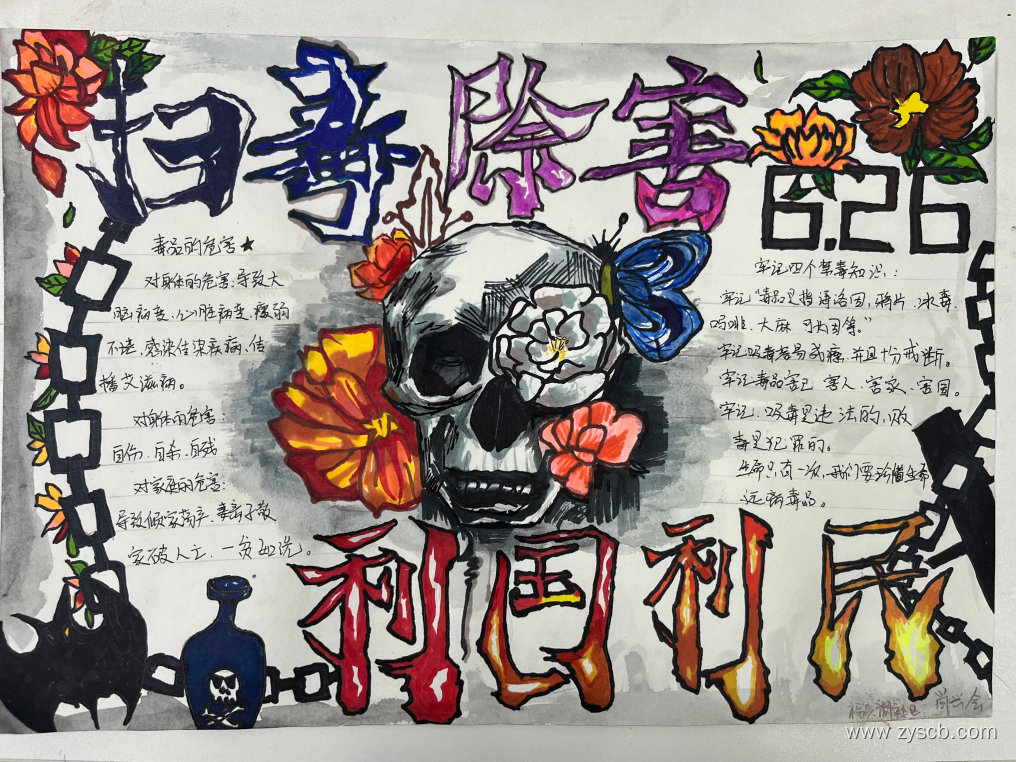 扫毒除害
6.26
毒品的危害★
对身体的危害:导致大
脑病变、心脏病变、瘦弱
不堪、感染传染疾病、传
播艾滋病。
对身体的危害:
自伤、自杀、自残
对家庭的危害:
导致倾家荡产、妻离子散
家破人亡、一贫如洗。
牢记四个禁毒知识:
牢记"毒品是指海洛因,鸦片、冰毒、
吗啡、大麻 可卡因等。"
牢记吸毒容易成瘾,并且十分戒断。
牢记毒品害己、害人、害家、害国。
牢记、吸毒是违法的,贩
毒是犯罪的。
生命只有一次,我们要珍惜生命
远离毒品。
利国利民
肖兴会
www.zyscb.com